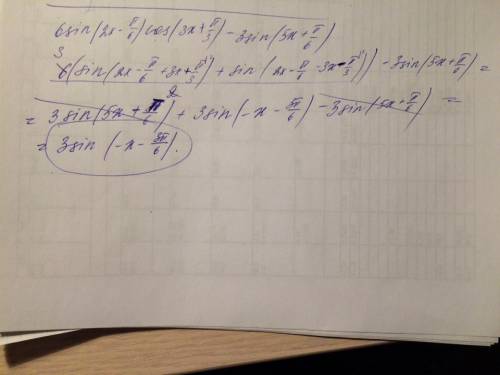 6sin(2x - π/6)cos(3x + π/3) - 3sin(5x + π/6)
3
6(sin(2x - π/6 + 3x + π/3) + sin(2x - π/6 - 3x - π/3)) - 3sin(5x + π/6) =
2
= 3sin(5x + π/6) + 3sin(-x - 3π/6) - 3sin(5x + π/6) =
= 3sin(-x - 3π/6).